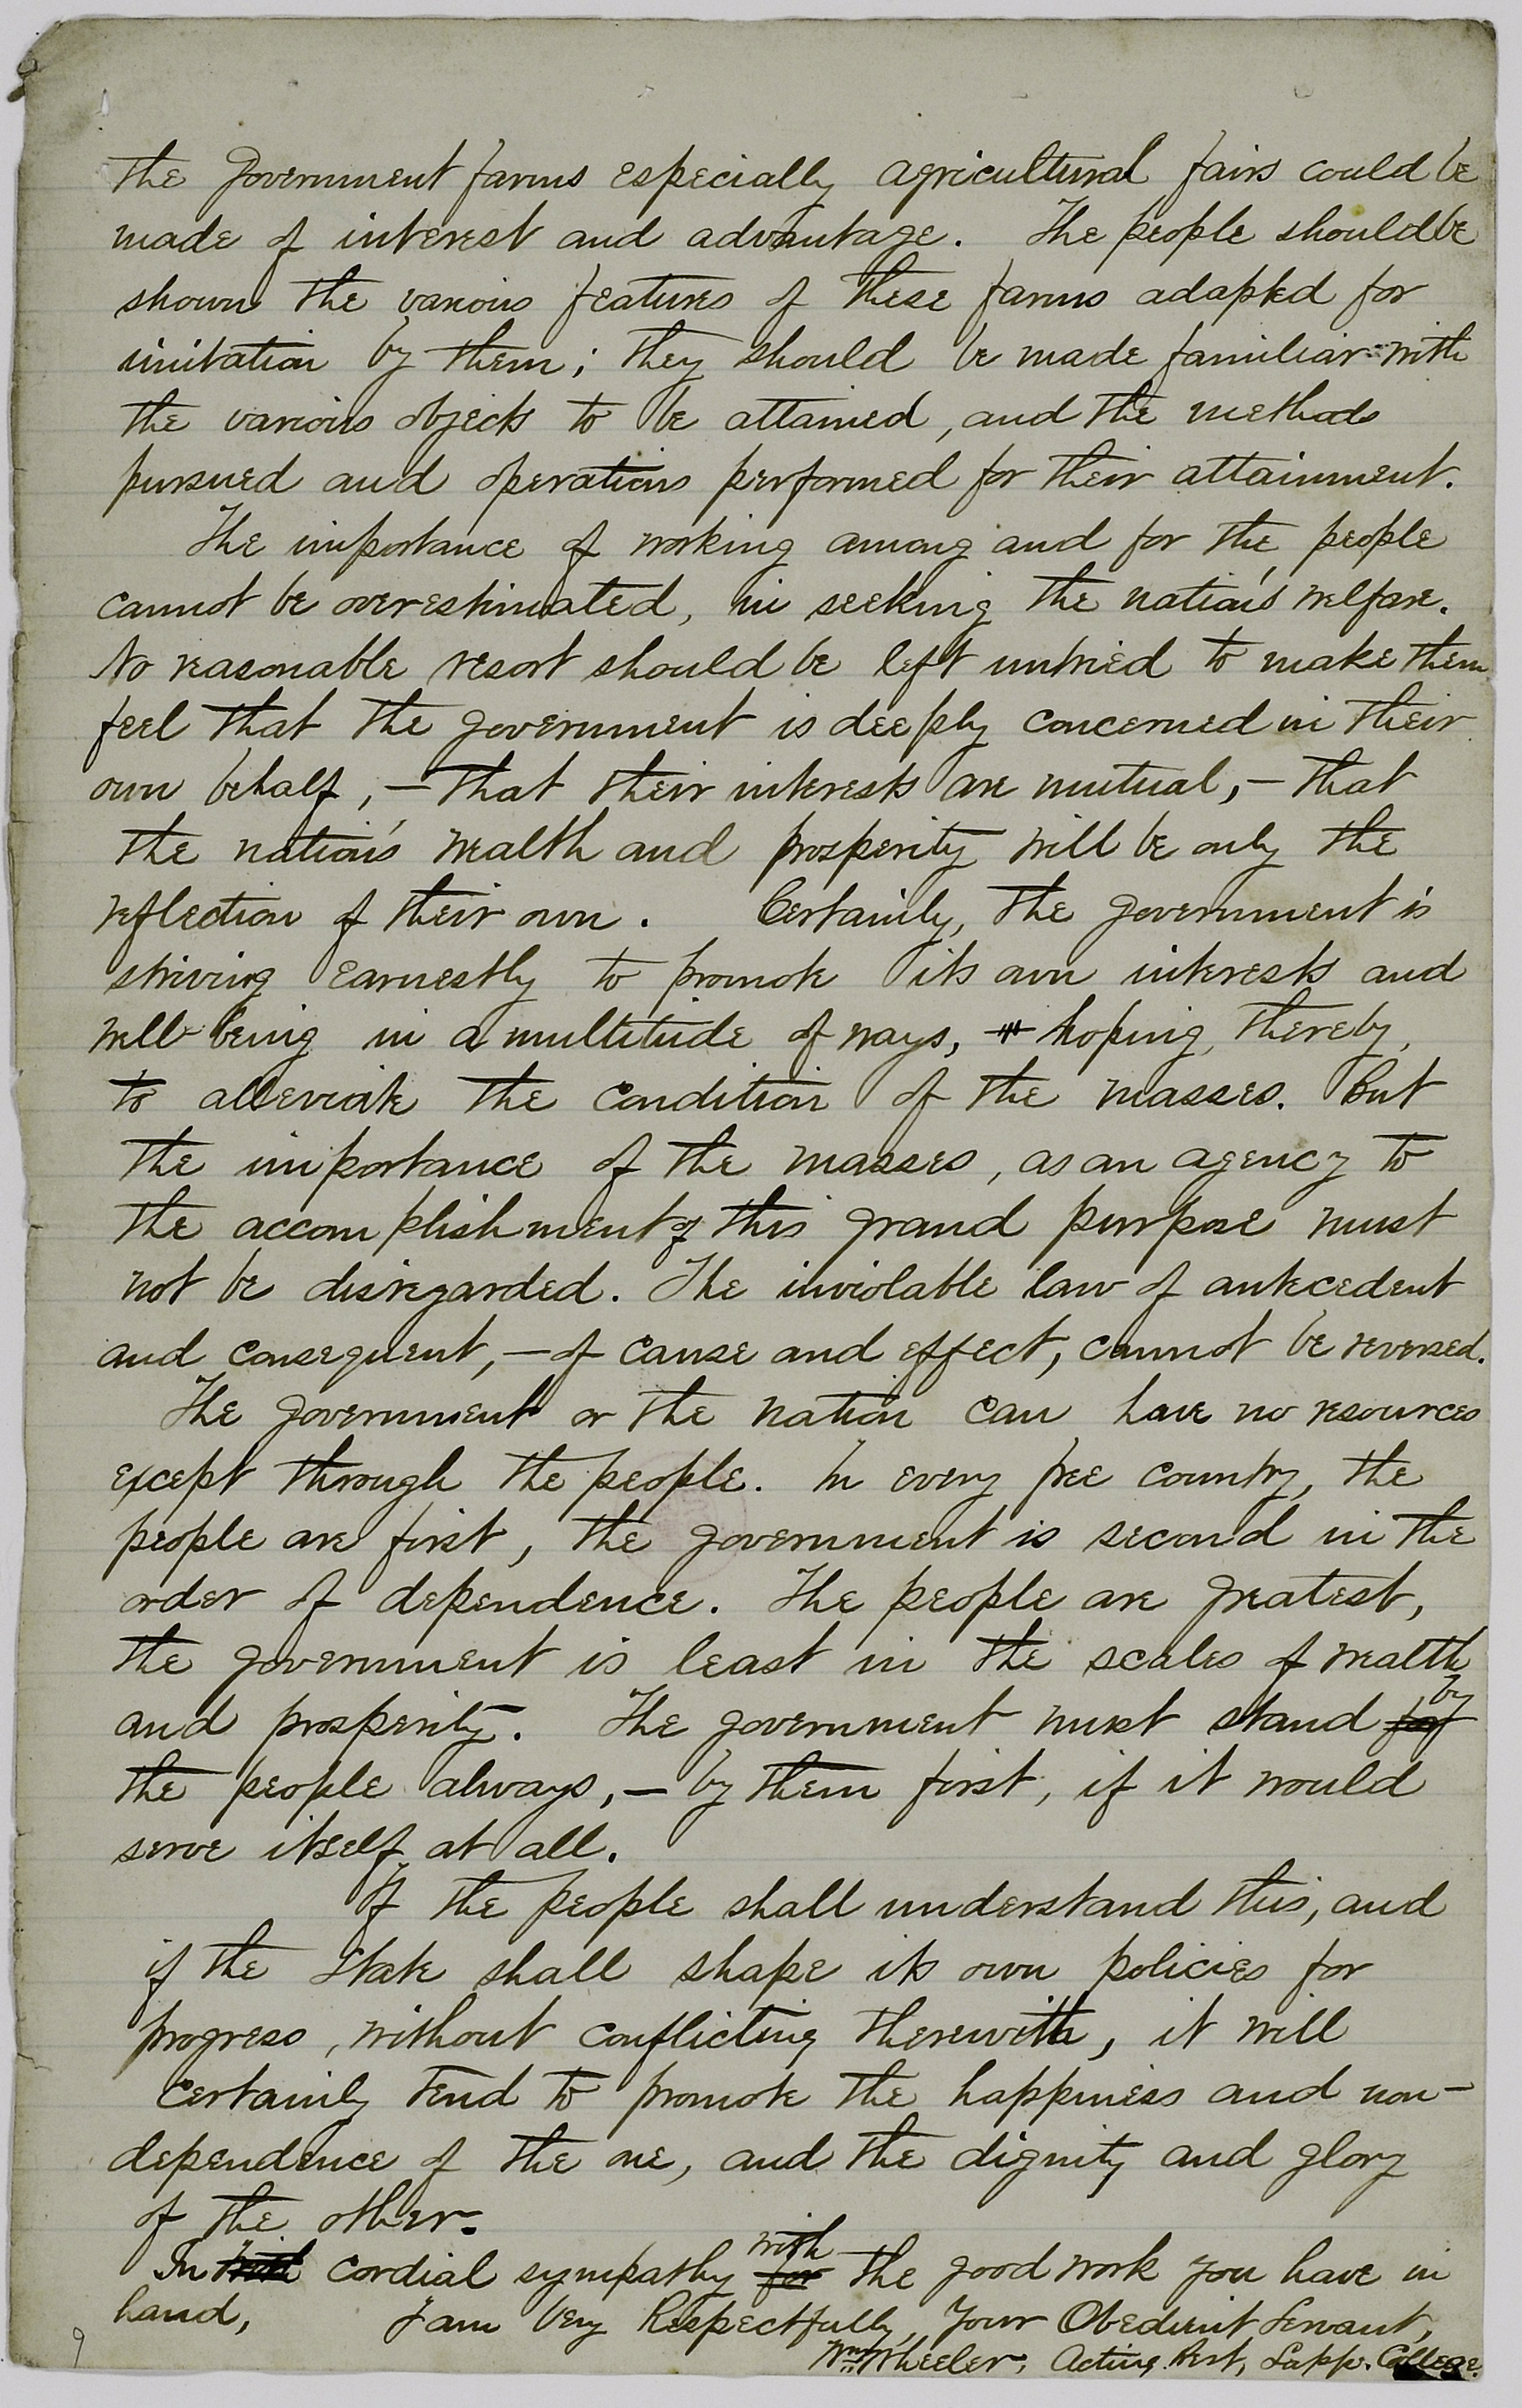 the government farms especially agricultural fairs could be
made of interest and advantage. The people should be
shown the various features of these farms adapted for
imitation by them; they should be made familiar with
the various objects to be attained, and the methods
pursued and operations performed for their attainment.
The importance of working among and for the people
cannot be overestimated, in seeking the nation's welfare.
No reasonable resort should be left untried to make them
feel that the government is deeply concerned in their
own behalf, — that their interests are mutual, — that
the nation's wealth and prosperity will be only the
reflection of their own. Certainly, the government is
striving earnestly to promote its own interests and
well-being in a multitude of ways, hoping, thereby,
to alleviate the condition of the masses. But
the importance of the masses, as an agency to
the accomplishment of this grand purpose must
not be disregarded. The inviolable law of antecedent
and consequent, — of cause and effect, cannot be reversed.
The government or the nation can have no resources
except through the people. In every free country, the
people are first, the government is second in the
order of dependence. The people are greatest,
the government is least in the scales of wealth
and prosperity. The government must stand for by
the people always, — by them first, if it would
serve itself at all.
If the people shall understand this, and
if the State shall shape its own policies for
progress, without conflicting therewith, it will
certainly tend to promote the happiness and non-
dependence of the one, and the dignity and glory
of the other.
In cordial sympathy for with the good work you have in
hand, I am Very Respectfully, Your Obedient Servant,
Wm Wheeler, Acting Prest, Sapp. College.
9